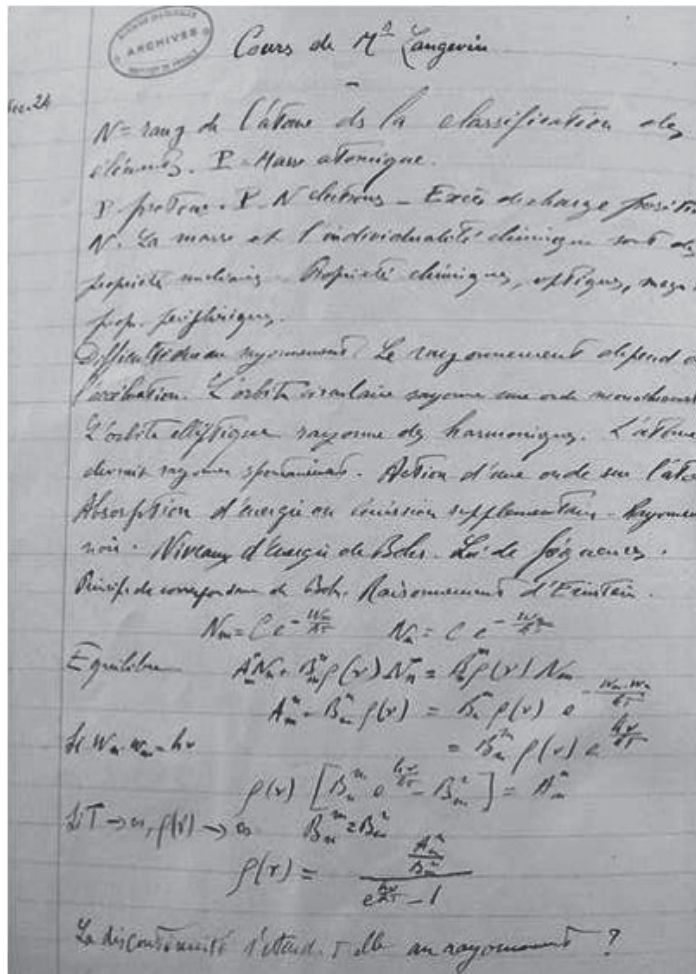 ARCHIVES
Cours de Mr Langevin
24
N = rang de l'atome ds la classification des
éléments. P = Masse atomique.
P protons. P-N électrons _ Excès de charge positi
N. La masse et l'individualité chimique sont des
propriétés nucléaires. Propriétés chimiques, optiques, magn
prop. périphériques.
Difficultés du rayonnement. Le rayonnement dépend
l'accélération. L'orbite circulaire rayonne une onde monochrom
L'orbite elliptique rayonne des harmoniques. L'atome
devrait rayonner spontanément. Action d'une onde sur l'ato
Absorption d'énergie ou émission supplémentaire. Rayonnement
noir. Niveaux d'énergie de Bohr. Loi de fréquences.
Principe de correspondance de Bohr. Raisonnement d'Einstein.
Nm = C e^-Wm/kT Nn = C e^-Wn/kT
Equilibre
ρ(ν) [Bnm e^hν/kT - Bmn] = Amn
Si T → ∞, ρ(ν) → ∞ Bnm = Bmn
ρ(ν) = Amn/Bmn / e^hν/kT - 1
La discontinuité s'étend-elle au rayonnement ?